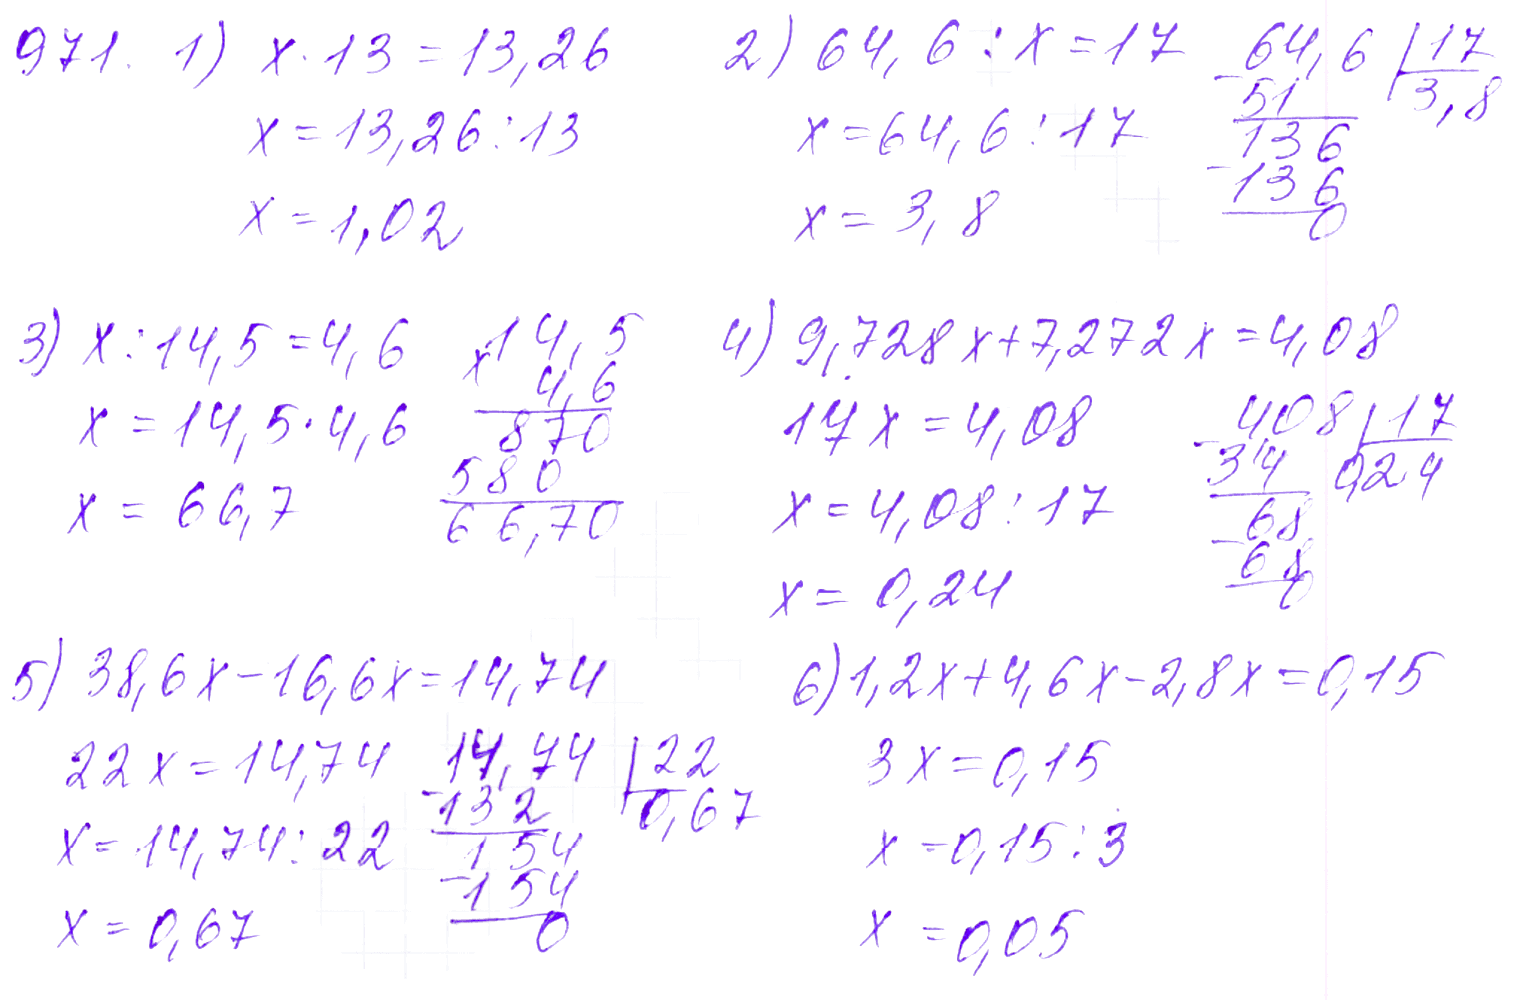 971. 1) x · 13 = 13,26
x = 13,26 : 13
x = 1,02
2) 64,6 : x = 17
x = 64,6 : 17
x = 3,8
64,6 | 17
- 51 3,8
136
- 136
0
3) x : 14,5 = 4,6
x = 14,5 · 4,6
x = 66,7
x 14,5
4,6
870
580
66,70
4) 9,728x + 7,272x = 4,08
17x = 4,08
x = 4,08 : 17
x = 0,24
408 | 17
- 34 0,24
68
- 68
0
5) 38,6x - 16,6x = 14,74
22x = 14,74
x = 14,74 : 22
x = 0,67
14,74 | 22
- 132 0,67
154
- 154
0
6) 1,2x + 4,6x - 2,8x = 0,15
3x = 0,15
x = 0,15 : 3
x = 0,05